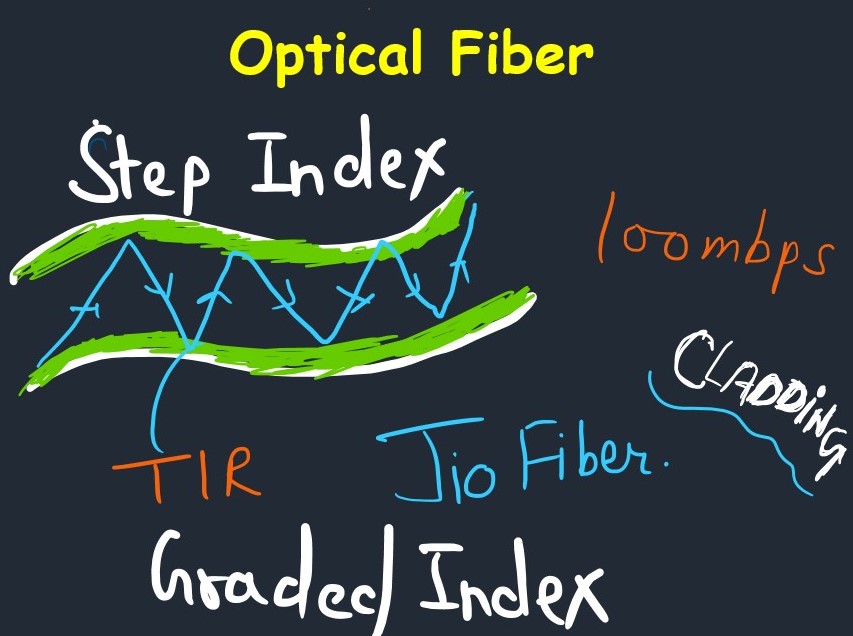 Optical Fiber
Step Index
100mbps
CLADDING
TIR
Jio Fiber.
Graded Index